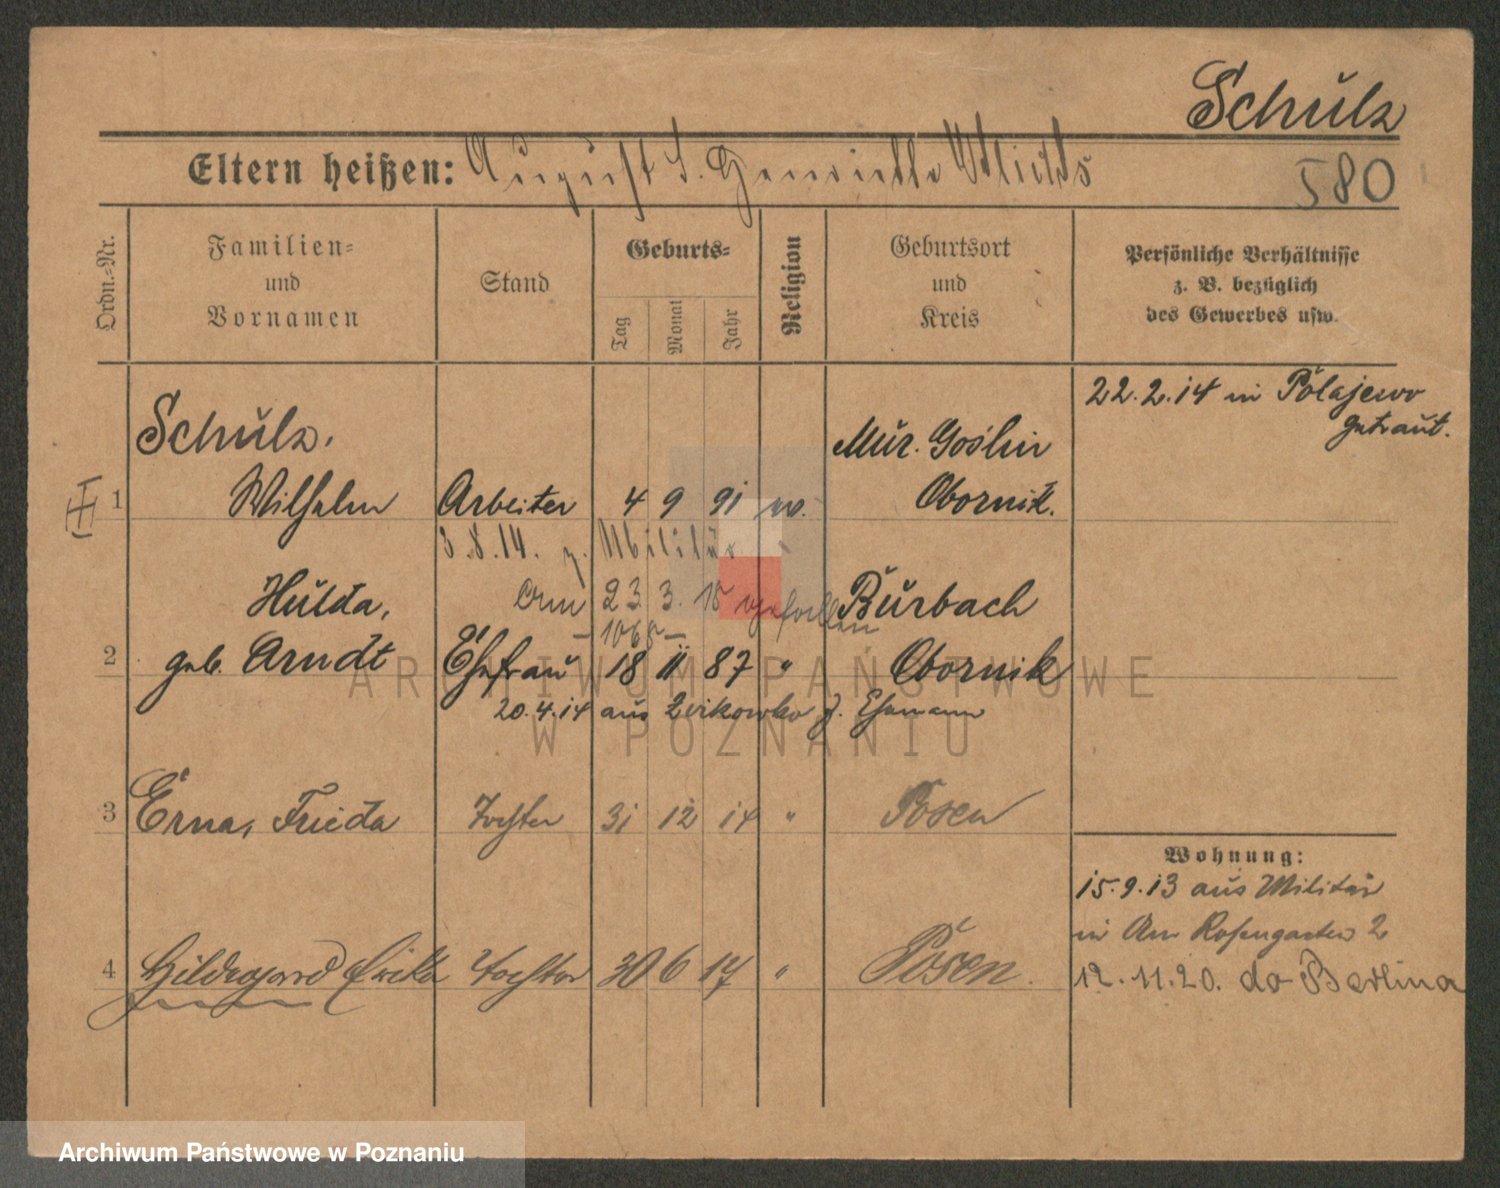 Schulz
Eltern heißen: August S. Henriette
580
Ordn.-Nr.
Familien-
und
Vornamen
Stand
Geburts-
Tag
Monat
Jahr
Religion
Geburtsort
und
Kreis
Persönliche Verhältnisse
z. B. bezüglich
des Gewerbes usw.
22.2.14 in Polajewo
getraut.
Schulz,
Mur. Goslin
1 Wilhelm Arbeiter 4 9 91 Obornik.
3.8.14. z. Militär
Hulda, am 23 3. 15 gefallen Burbach
2 geb. Arndt Ehefrau 18 11 87 " Obornik
20.4.14 aus z. Ehemann
3 Erna, Frieda Tochter 31 12 14 " Posen
Wohnung:
15.9.13 aus Militär
in Am Rosengarten 2
4 Hildegard Erika Tochter 30 6 17 " Posen.
12.11.20. do Berlina
ARCHIWUM PAŃSTWOWE
W POZNANIU
Archiwum Państwowe w Poznaniu